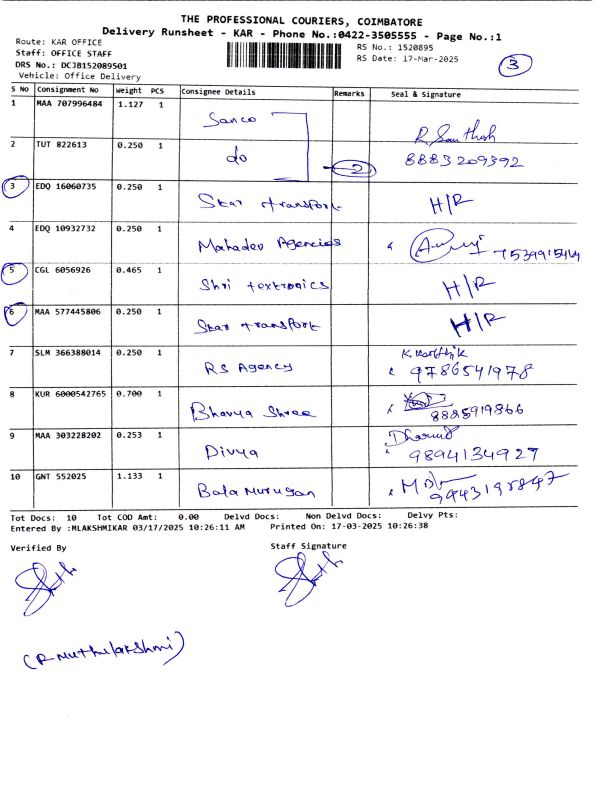 THE PROFESSIONAL COURIERS, COIMBATORE
Delivery Runsheet - KAR - Phone No.:0422-3505555 - Page No.:1
Route: KAR OFFICE
Staff: OFFICE STAFF
DRS No.: DCJB152089501
Vehicle: Office Delivery
RS No.: 1520895
RS Date: 17-Mar-2025
3
S No Consignment No Weight PCS Consignee Details Remarks Seal & Signature
1 MAA 707996484 1.127 1 Sanco R. Santhosh
2 TUT 822613 0.250 1 do 2 8883209392
3 EDQ 16060735 0.250 1 Star transport H/R
4 EDQ 10932732 0.250 1 Mahadev Agencies
5 CGL 6056926 0.465 1 Shri textronics H/R
6 MAA 577445806 0.250 1 Star transport H/R
7 SLM 366388014 0.250 1 RS Agency K. Karthik 9786541978
8 KUR 6000542765 0.700 1 Bhavya Shree 8885919866
9 MAA 303228202 0.253 1 Divya 9894134927
10 GNT 552025 1.133 1 Bala Murugan
Tot Docs: 10 Tot COD Amt: 0.00 Delvd Docs: Non Delvd Docs: Delvy Pts:
Entered By :MLAKSHMIKAR 03/17/2025 10:26:11 AM Printed On: 17-03-2025 10:26:38
Verified By Staff Signature
(R-Muthulakshmi)